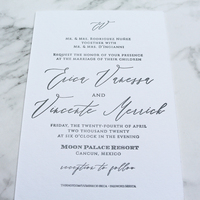 W
MR. & MRS. RODRIGUEZ MUNOZ
TOGETHER WITH
MR. & MRS. O'THOIANNE
REQUEST THE HONOR OF YOUR PRESENCE
AT THE MARRIAGE OF THEIR CHILDREN
Erica Vanessa
AND
Vincente Merrick
FRIDAY, THE TWENTY-FOURTH OF APRIL
TWO THOUSAND TWENTY
AT SIX O'CLOCK IN THE EVENING
MOON PALACE RESORT
CANCUN, MEXICO
reception to follow